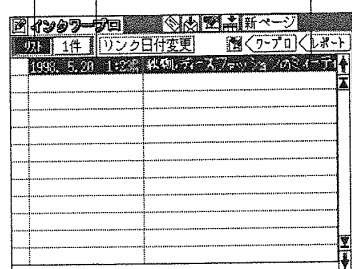 インクワープロ 新ページ
リスト 1件 リンク日付変更 ワープロ レポート
1998. 5.20 秋物レディースファッションのミーティ